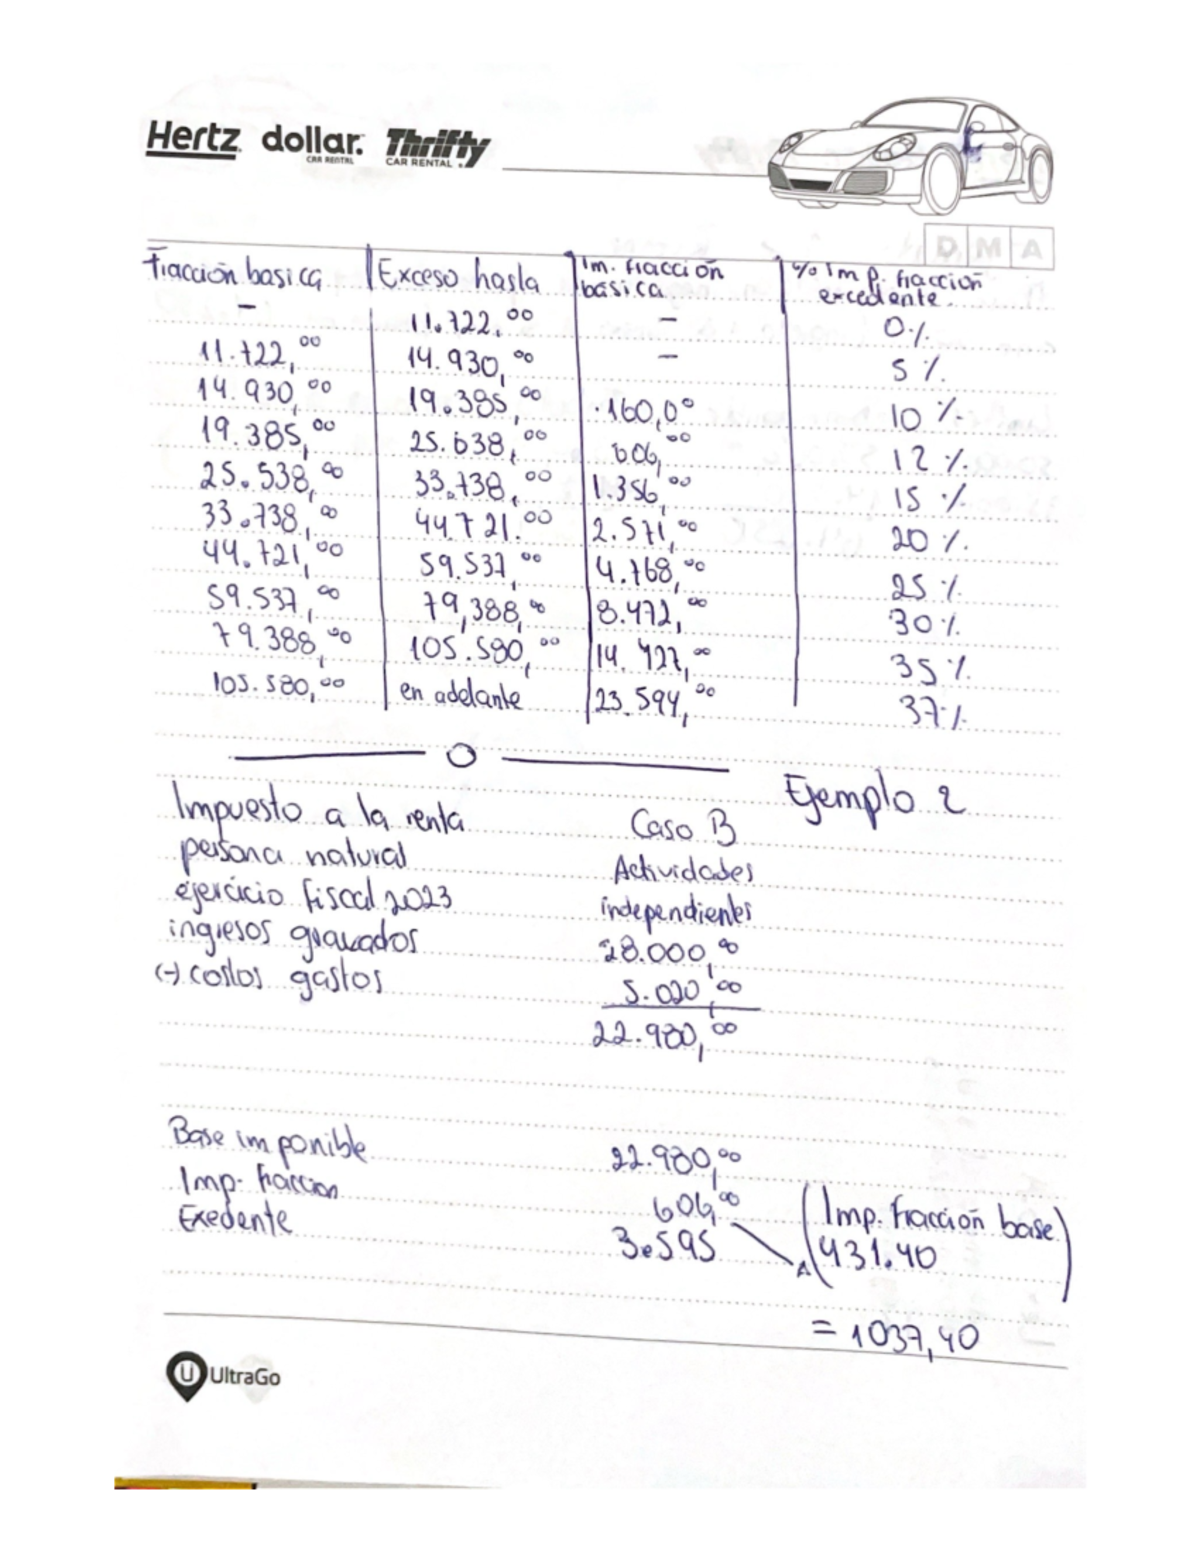 Hertz dollar. Thrifty
CAR RENTAL CAR RENTAL
D M A
Fracción basica Exceso hasta Im. fracción básica % Imp. fracción excedente
- 11.722,00 - 0%
11.722,00 14.930,00 - 5%
14.930,00 19.385,00 160,00 10%
19.385,00 25.638,00 606,00 12%
25.538,00 33.738,00 1.356,00 15%
33.738,00 44.721.00 2.571,00 20%
44.721,00 59.537,00 4.768,00 25%
59.537,00 79,388,00 8.472,00 30%
79.388,00 105.580,00 14.427,00 35%
105.580,00 en adelante 23.594,00 37%
Ejemplo 2
Impuesto a la renta Caso B
persona natural Actividades
ejercicio fiscal 2023 independientes
ingresos gravados 28.000,00
(-) costos gastos 5.020,00
22.980,00
Base imponible 22.980,00
Imp. fraccion 606,00 (Imp. fracción base)
Exedente 3.595 431.40
= 1037,40
UltraGo